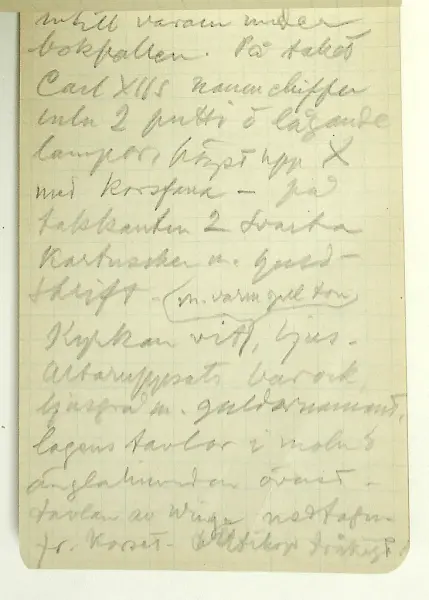 intill varann under
bokpallen. På taket
Carl XIIs namnchiffer
mln 2 putti o lågande
lampor, högst upp X
med korsfana – på
takkanten 2 svarta
Kartuscher m. guld-
skrift. (m. varm gul ton)
Kyrkan vit, ljus.
Altaruppsats barock,
ljusgrå m. guldornament,
lagens tavlor i moln o
änglahuvuden överst –
tavlan av Winge nedtagn.
fr. Korset –